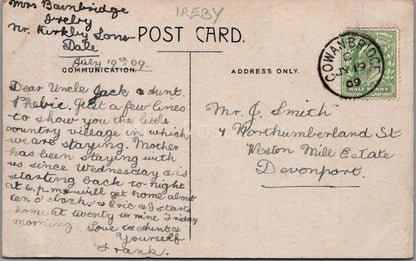 Mrs Bainbridge
Ireby
Nr. Kirkby Lons
Dale
IREBY
POST CARD.
July 19th 09.
COMMUNICATION.
ADDRESS ONLY.
COWANBRIDGE
JY 19
09
HALF PENNY
Dear Uncle Jack & Aunt.
Phebie, Just a few lines
to show you the little
country village in which
we are staying. Mother
has been staying with
us since Wednesday & is
starting back to night
at 6. p.m. will get home about
ten o'clock, & Eric & I starts
home at twenty to nine Friday
morning. Love to
Yourself
Frank.
Mr. J. Smith
4 Northumberland St
Weston Mill Estate
Devonport.